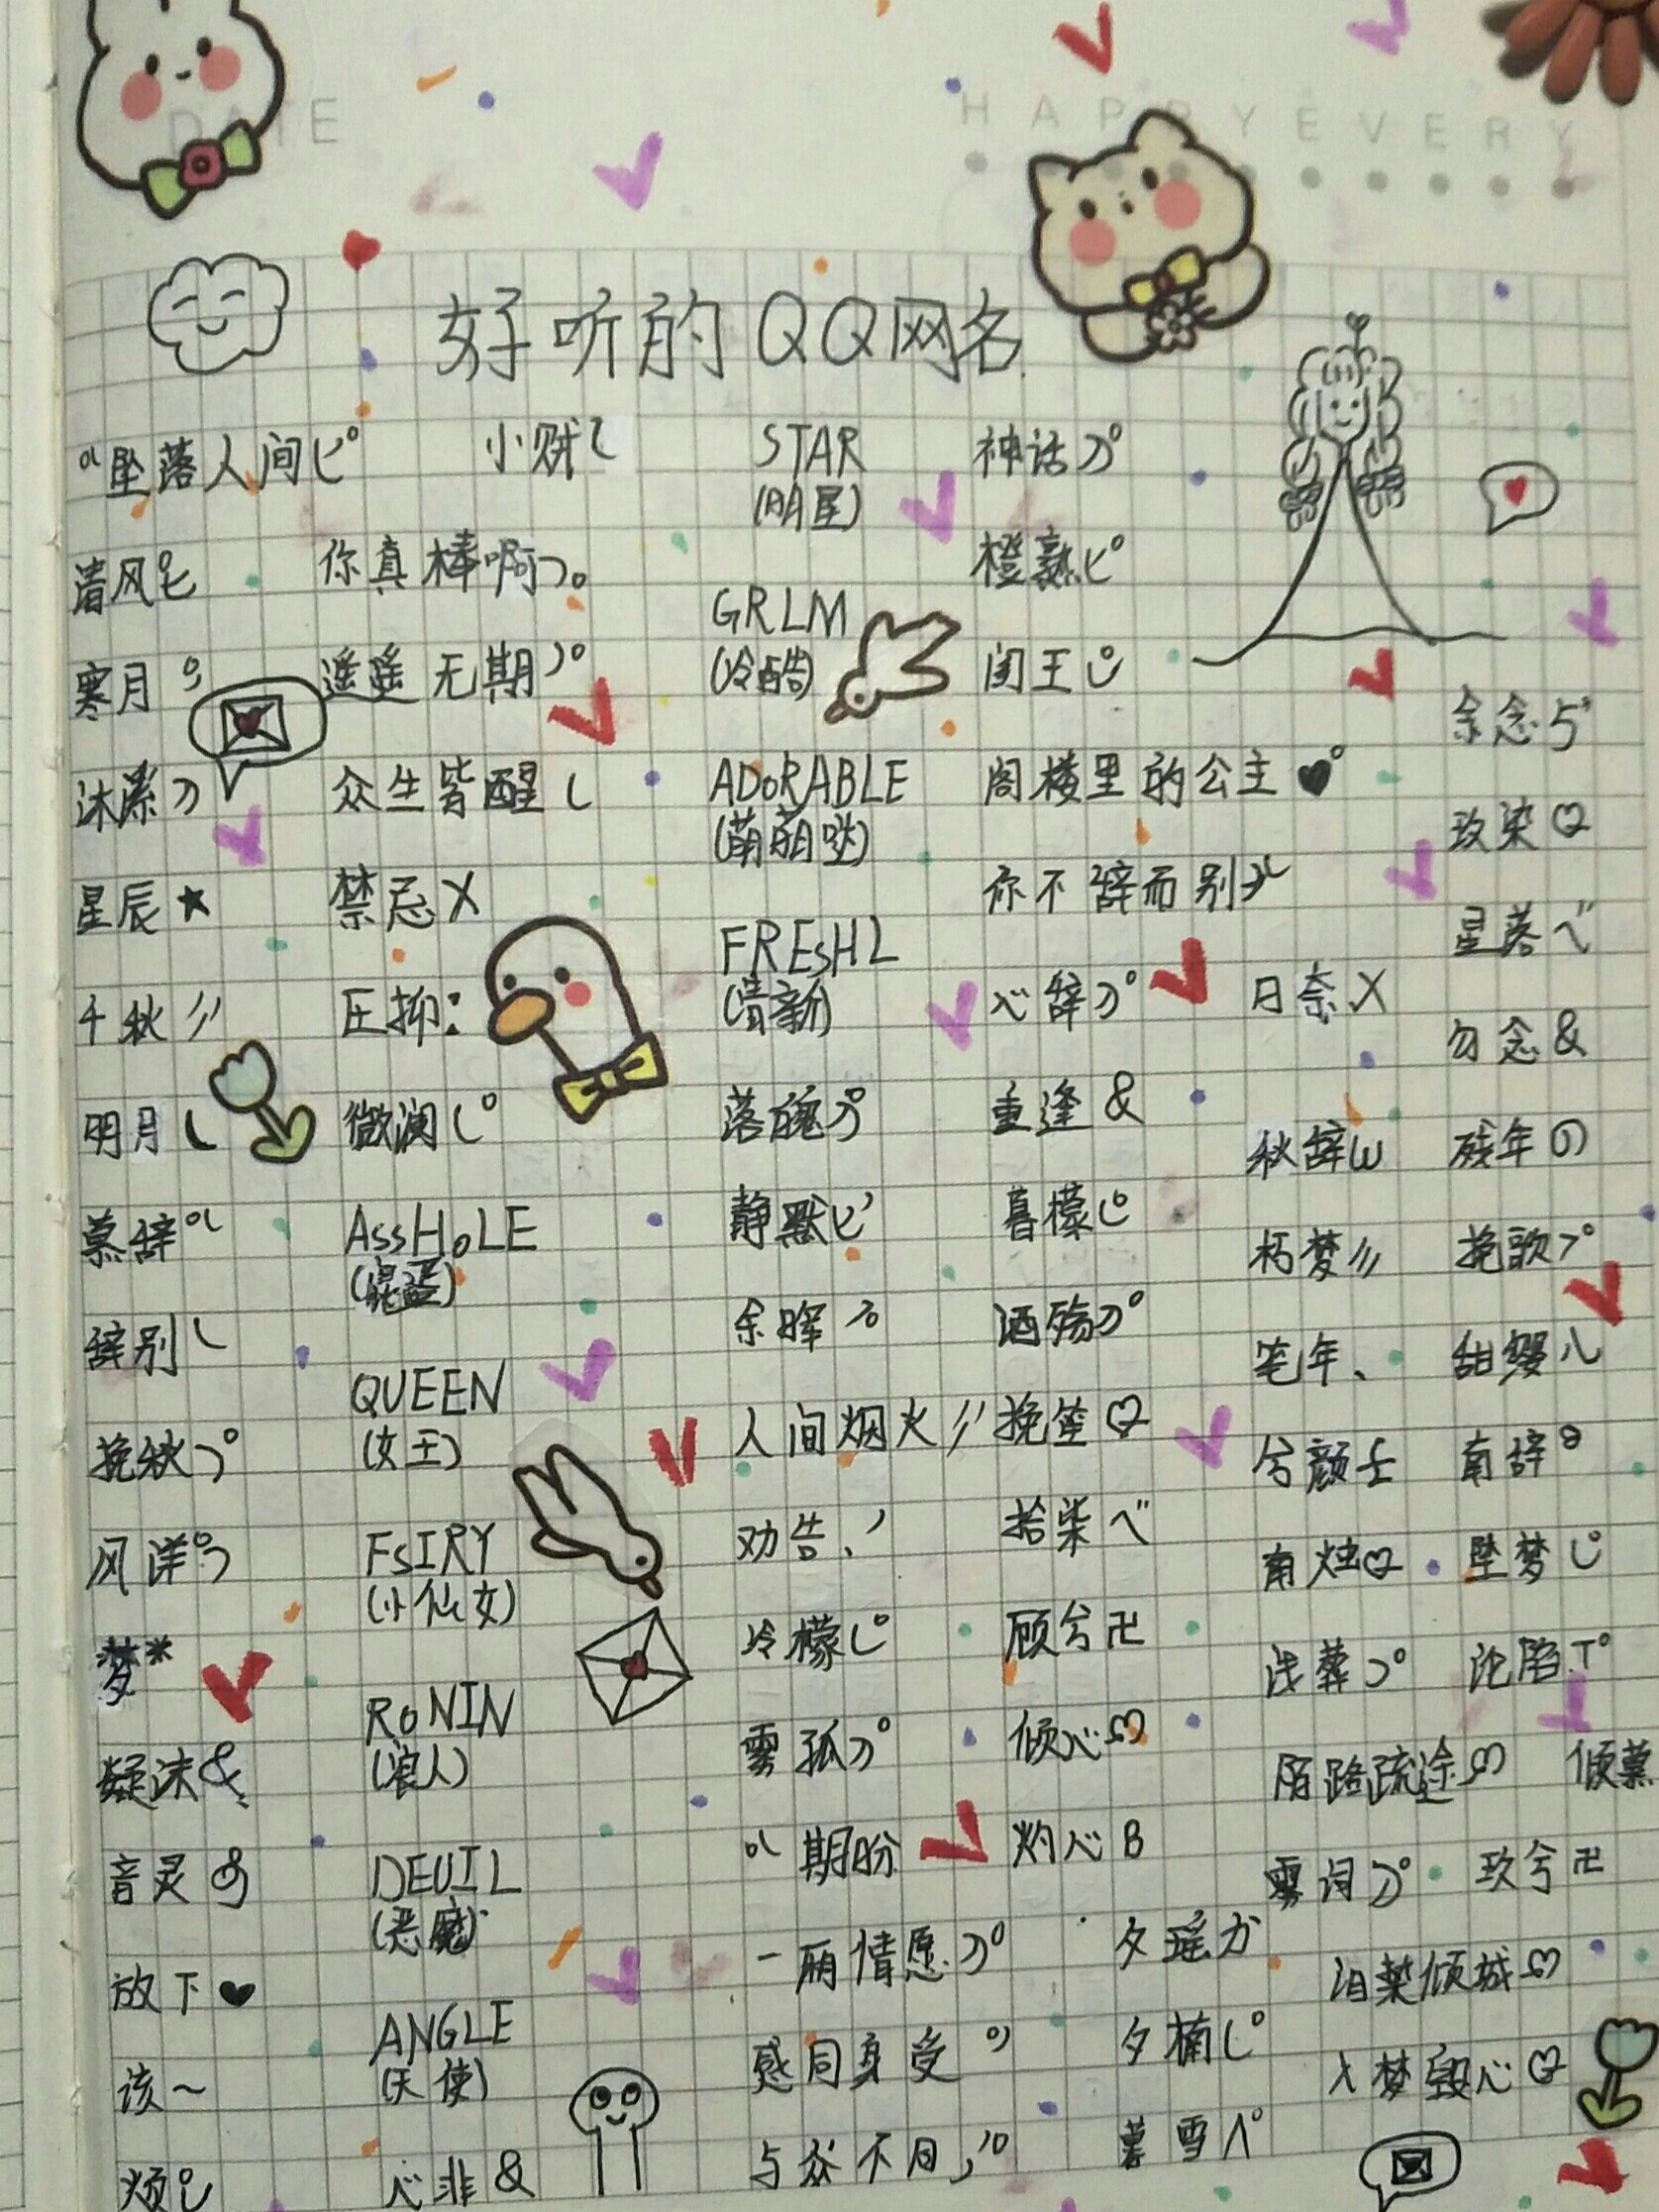 DATE
HAPPY EVERY
好听的QQ网名
坠落人间
清风
寒月
沐漯
星辰★
千秋
明月
慕辞
辞别
挽秋
风洋
梦*
凝沫&
音灵
放下♥
该~
烦
小贼
你真棒啊
遥遥无期
众生皆醒
禁忌X
压抑:
微澜
AssHoLE
(混蛋)
QUEEN
(女王)
FsIRY
(小仙女)
RoNIN
(浪人)
DEUIL
(恶魔)
ANGLE
(天使)
心非&
STAR
(明星)
GRLM
(冷酷)
ADoRABLE
(萌萌哒)
FREsHL
(清新)
落魄
静默
余晖
人间烟火
劝告、
冷檬
雾孤
期盼
一厢情愿
感同身受
与众不同
神话
橙熟
闰王
阁楼里的公主♥
你不辞而别
心辞
重逢&
暮檬
酒殇
挽笙
拾柒
顾兮卍
倾心
灼心B
夕瑶
夕楠
暮雪
日奈X
秋辞ω
朽梦
笔年、
兮颜
南烛
浅葬
陌路疏途
雾词
泪葉倾城
入梦毁心
余念
玖染
星落
勿念&
残年の
挽歌
甜缀
南辞
坠梦
沦陷
倾慕
玖兮卍